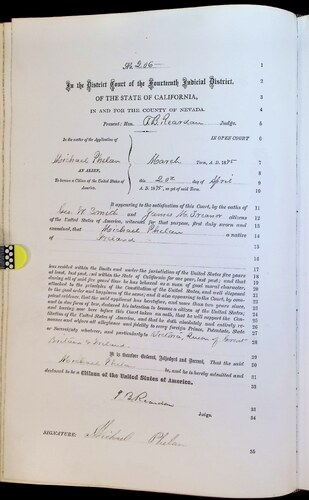 No 206-
1
In the District Court of the Fourteenth Judicial District.
2
OF THE STATE OF CALIFORNIA,
3
IN AND FOR THE COUNTY OF NEVADA.
4
Present: Hon. Judge. 5
In the matter of the Application of IN OPEN COURT 6
Michael Phelan March Term, A. D. 1875 7
AN ALIEN, 8
To become a Citizen of the United States of this 20th day of April 9
America. A. D. 1875, as yet of said Term. 10
It appearing to the satisfaction of this Court, by the oaths of 11
Geo. W. Smith and James citizens 12
of the United States of America, witnesses for that purpose, first duly sworn and
examined, that Michael Phelan a native
of Ireland
has resided within the limits and under the jurisdiction of the United States five years
at least, last past, and within the State of California for one year, last past; and that
during all of said five years' time he has behaved as a man of good moral character,
attached to the principles of the Constitution of the United States, and well disposed
to the good order and happiness of the same; and it also appearing to the Court, by competent evidence, that the said applicant has heretofore, and more than two years since,
and in due form of law, declared his intention to become a citizen of the United States,
and having now here before this Court taken an oath, that he will support the Constitution of the United States of America, and that he doth absolutely and entirely renounce and abjure all allegiance and fidelity to every foreign Prince, Potentate, State
or Sovereignty whatever, and particularly to Victoria, Queen of Great
Britain & Ireland.
It is therefore Ordered, Adjudged and Decreed, That the said
Michael Phelan be, and he is hereby admitted and
declared to be a Citizen of the United States of America.
Judge.
SIGNATURE: Michael Phelan